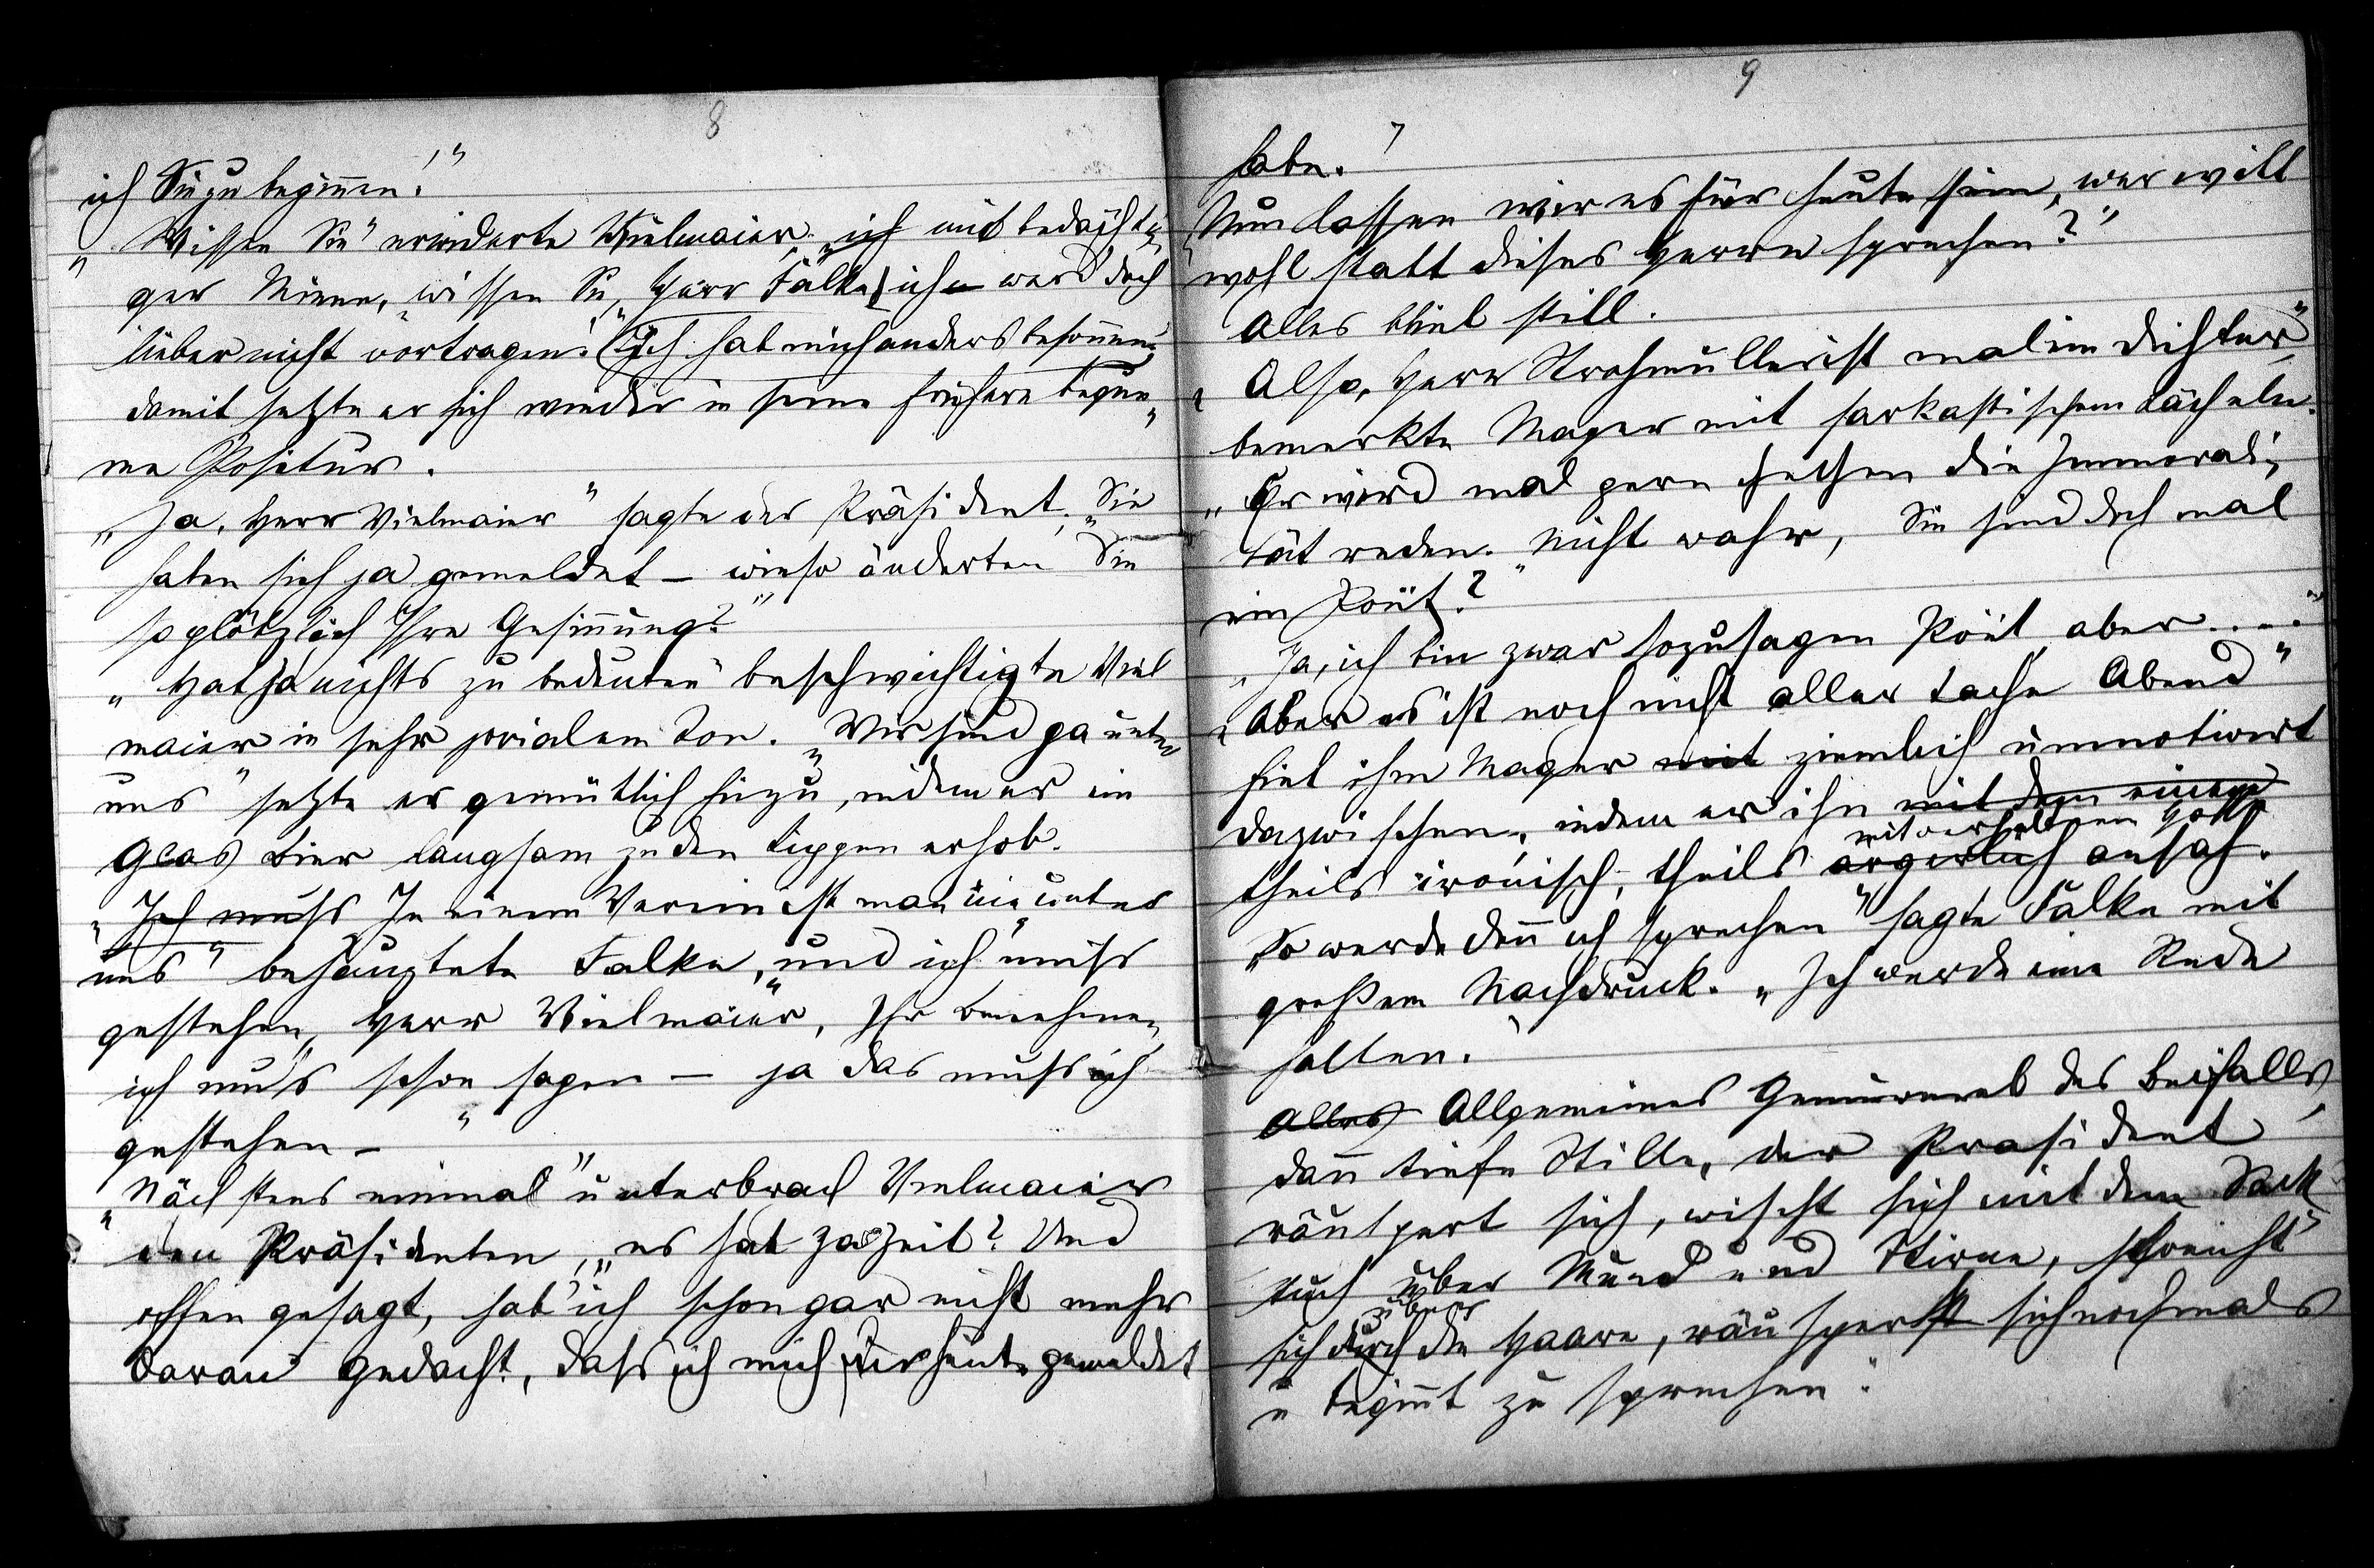 8
ich Sie zu beginnen!"
„Wissen Sie" erwiderte Vielmaier, „ich mit bedächti-
ger Miene, „wissen Sie, Herr Falke, ich werd' doch
lieber nicht vortragen! Ich hab mich anders besonnen"
damit setzte er sich wieder in seine frühere beque-
me Positur.
„Ja, Herr Vielmaier" sagte der Präsident, „Sie
haben sich ja gemeldet – wieso änderten Sie
so plötzlich Ihre Gesinnung?"
„Hat ja nichts zu bedeuten" beschwichtigte Viel
maier in sehr jovialem Ton. „Wir sind ja unter
uns" setzte er gemütlich hinzu, indem er ein
Glas Bier langsam zu den Lippen erhob.
„Ich muss In einem Verein ist man nie unter
uns" behauptete Falke, „und ich muss
gestehen, Herr Vielmaier, Ihr Benehmen,
ich muss schon sagen – ja das muss ich
gestehen – "
„Nächstens einmal" unterbrach Vielmaier
den Präsidenten, „es hat ja Zeit? Und
offen gesagt, hab' ich schon gar nicht mehr
daran gedacht, dass ich mich für heute gemeldet
9
habe."
„Nun lassen wir es für heute sein, wer will
wohl statt dieses Herrn sprechen?"
Alles blieb still.
„Also, Herr Strohmüller ist mal ein Dichter"
bemerkte Mager mit sarkastischem Lächeln.
„Er wird mal gern die Immorali-
tät reden. Nicht wahr, Sie sind doch mal
ein Poët?"
„Ja, ich bin zwar sozusagen Poët, aber . . . ."
„Aber es ist noch nicht aller Tache Abend"
fiel ihm Mager mit ziemlich unmotiviert
dazwischen, indem er ihn mit dem einem
mit verhaltnem
theils ironisch, theils ärgerlich ansah.
„So werde denn ich sprechen" sagte Falke mit
großem Nachdruck. „Ich werde eine Rede
halten."
Alles Allgemeines Gemurmel des Beifalls,
dann tiefe Stille, der Präsident
räuspert sich, wischt sich mit dem Sack
tuch über Mund und Stirne, streicht
über
sich durch die Haare, räuspert sich nochmals
u beginnt zu sprechen: